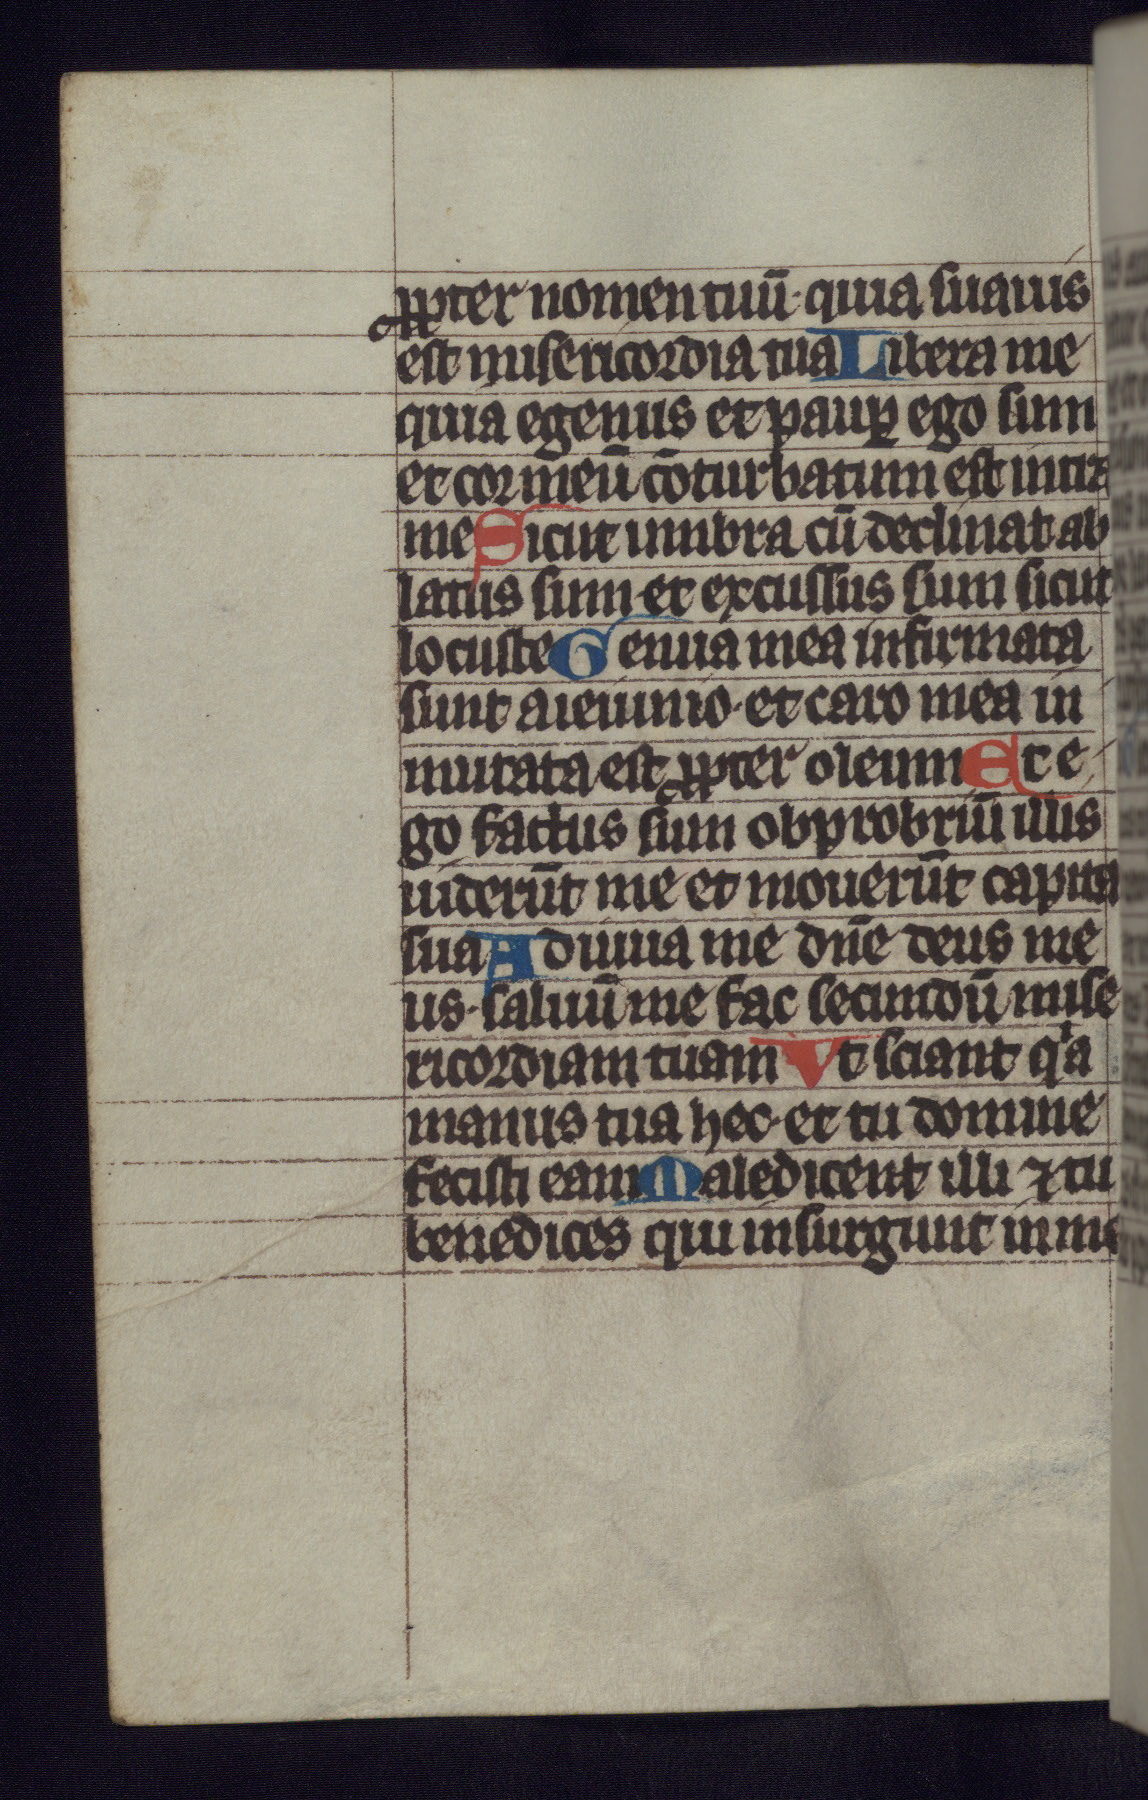 ꝓpter nomen tuū· quia suauis
est misericordia tua Libera me
quia egenus et pauꝑ ego sum
et cor meū cōturbatum est intra
me Sicut umbra cū declinat ab
latus sum· et excussus sum sicut
locuste Genua mea infirmata
sunt a ieiunio· et caro mea in
mutata est ꝓpter oleum Et e
go factus sum obprobriū illis
uiderūt me et mouerūt capita
sua Adiuua me dn̄e deus me
us· saluū me fac secundū mise
ricordiam tuam Vt sciant qͥa
manus tua hec· et tu domine
fecisti eam Maledicent illi ⁊ tu
benedices qui insurgunt in me